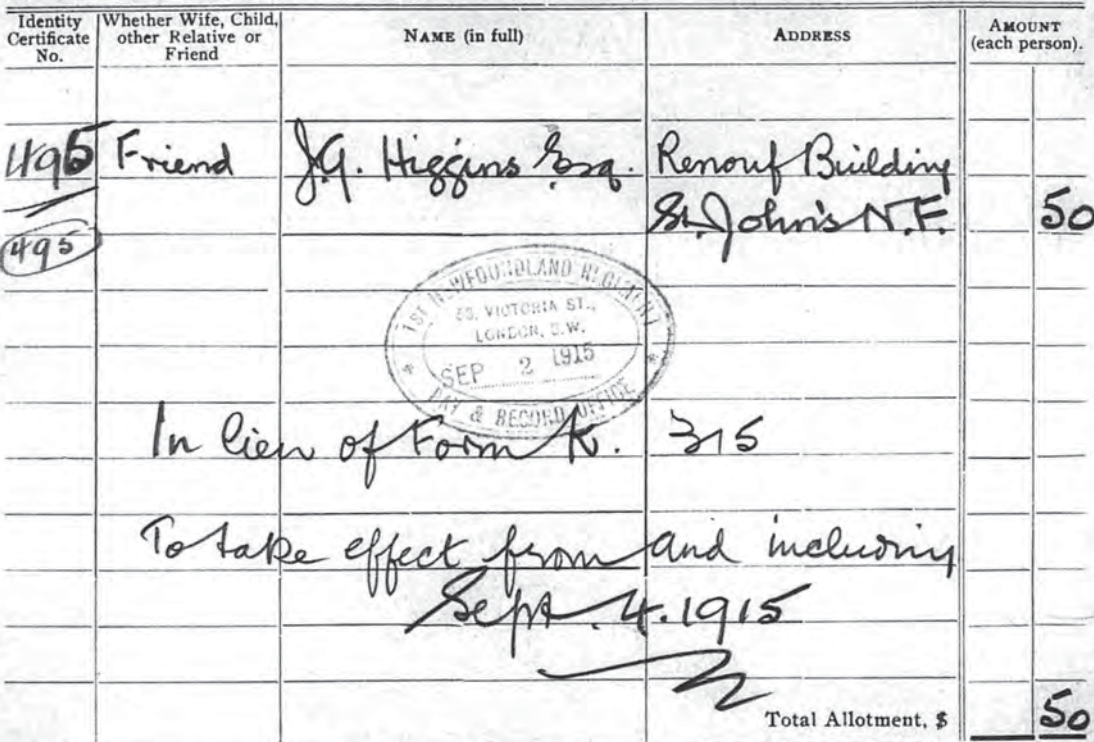 Identity Certificate No.
Whether Wife, Child, other Relative or Friend
NAME (in full)
ADDRESS
AMOUNT (each person).
495 Friend J.G. Higgins Esq. Renouf Building
St. John's N.F. 50
495
1ST NEWFOUNDLAND REGIMENT
VICTORIA ST.,
LONDON, S.W.
SEP 2 1915
PAY & RECORD OFFICE
In lieu of Form K. 315
To take effect from and including
Sept. 4. 1915
Total Allotment, $ 50